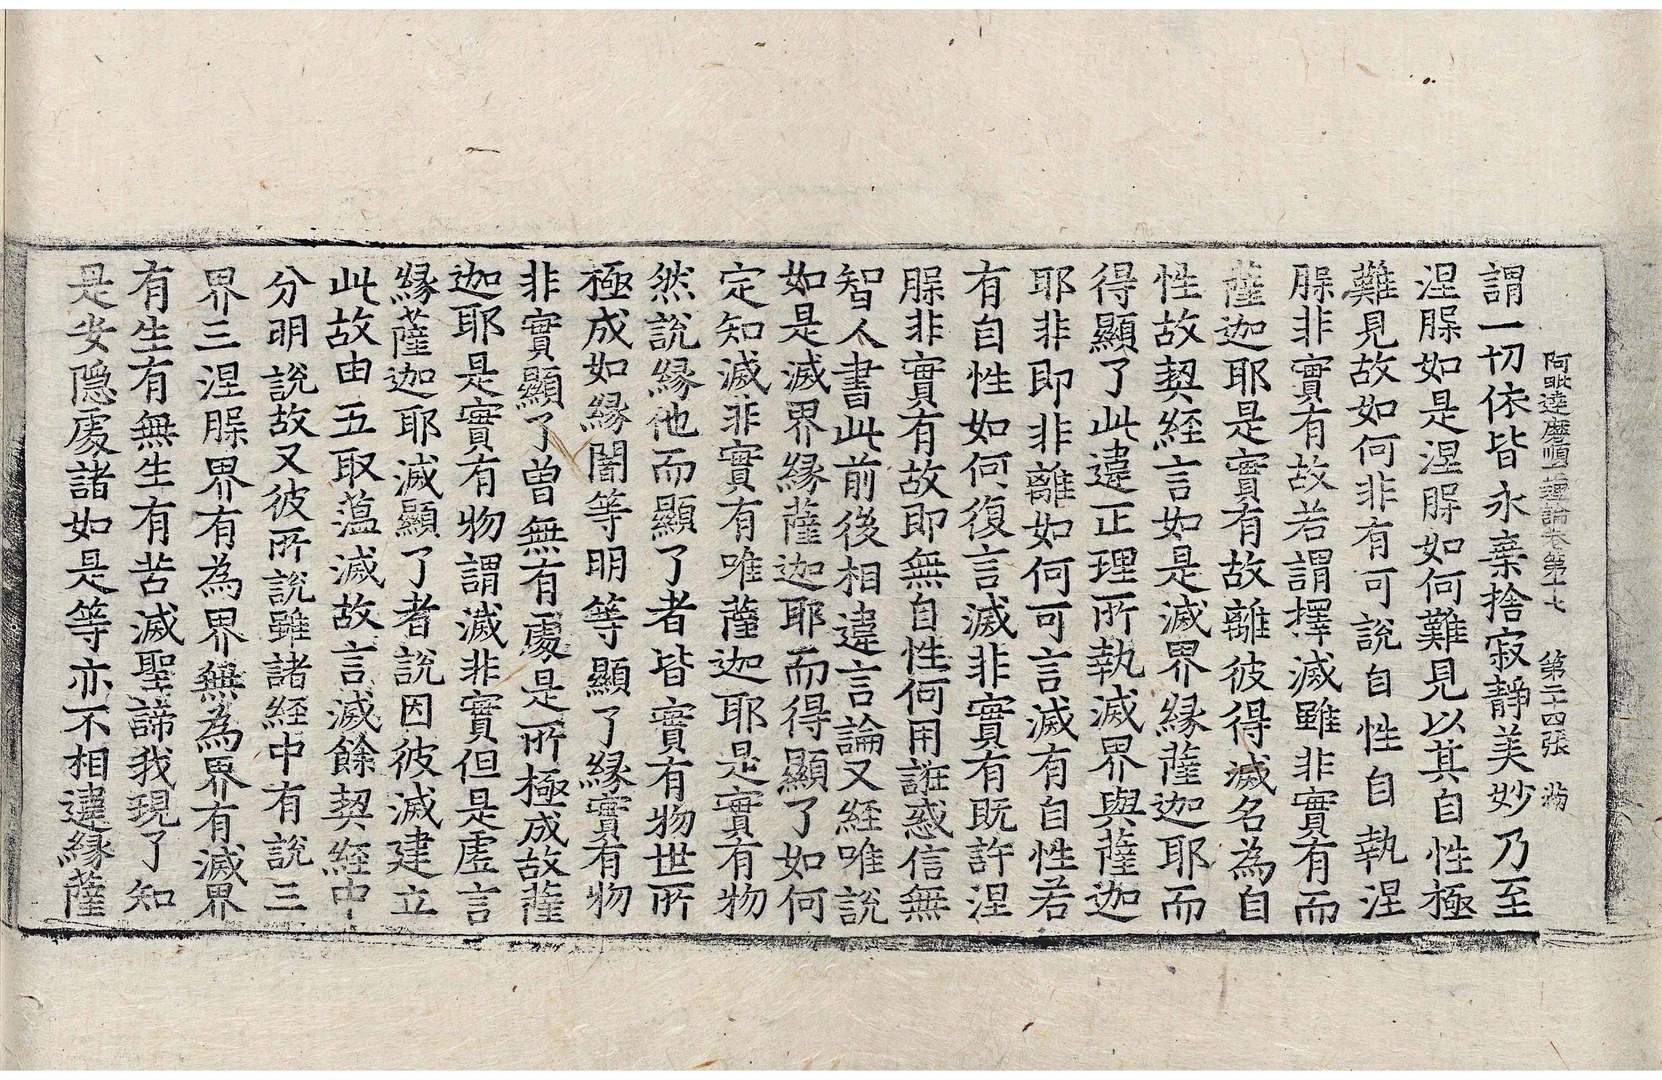 阿毗達磨順正理論卷第十七　第二十四張　滿
謂一切依皆永棄捨寂靜美妙乃至
涅槃如是涅槃如何難見以其自性極
難見故如何非有可說自性自執涅
槃非實有故若謂擇滅雖非實有而
薩迦耶是實有故離彼得滅名為自
性故契經言如是滅界緣薩迦耶而
得顯了此違正理所執滅界與薩迦
耶非即非離如何可言滅有自性若
有自性如何復言滅非實有既許涅
槃非實有故即無自性何用誑惑信無
智人書此前後相違言論又經唯說
如是滅界緣薩迦耶而得顯了如何
定知滅非實有唯薩迦耶是實有物
然說緣他而顯了者皆實有物世所
極成如緣闇等明等顯了緣實有物
非實顯了曾無有處是所極成故薩
迦耶是實有物謂滅非實但是虛言
緣薩迦耶滅顯了者說因彼滅建立
此故由五取薀滅故言滅餘契經中
分明說故又彼所說雖諸經中有說三
界三涅槃界有為界無為界有滅界
有生有無生有苦滅聖諦我現了知
是安隱處諸如是等亦不相違緣薩